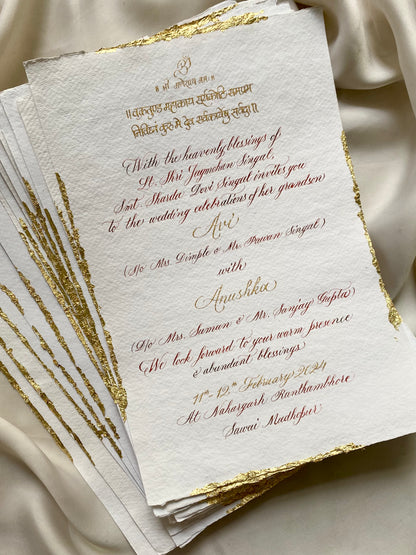 ॥ श्री गणेशाय नमः ॥
॥ वक्रतुण्ड महाकाय सूर्यकोटि समप्रभ
निर्विघ्नं कुरु मे देव सर्वकार्येषु सर्वदा ॥
With the heavenly blessings of
Lt. Shri Jugmohan Singal,
Smt. Sharda Devi Singal invites you
to the wedding celebrations of her grandson
Avi
(S/o Mrs. Dimple & Mr. Pawan Singal)
with
Anushka
(D/o Mrs. Suman & Mr. Sanjay Gupta)
We look forward to your warm presence
& abundant blessings
11th - 12th February 2024
At Nahargarh Ranthambhore
Sawai Madhopur